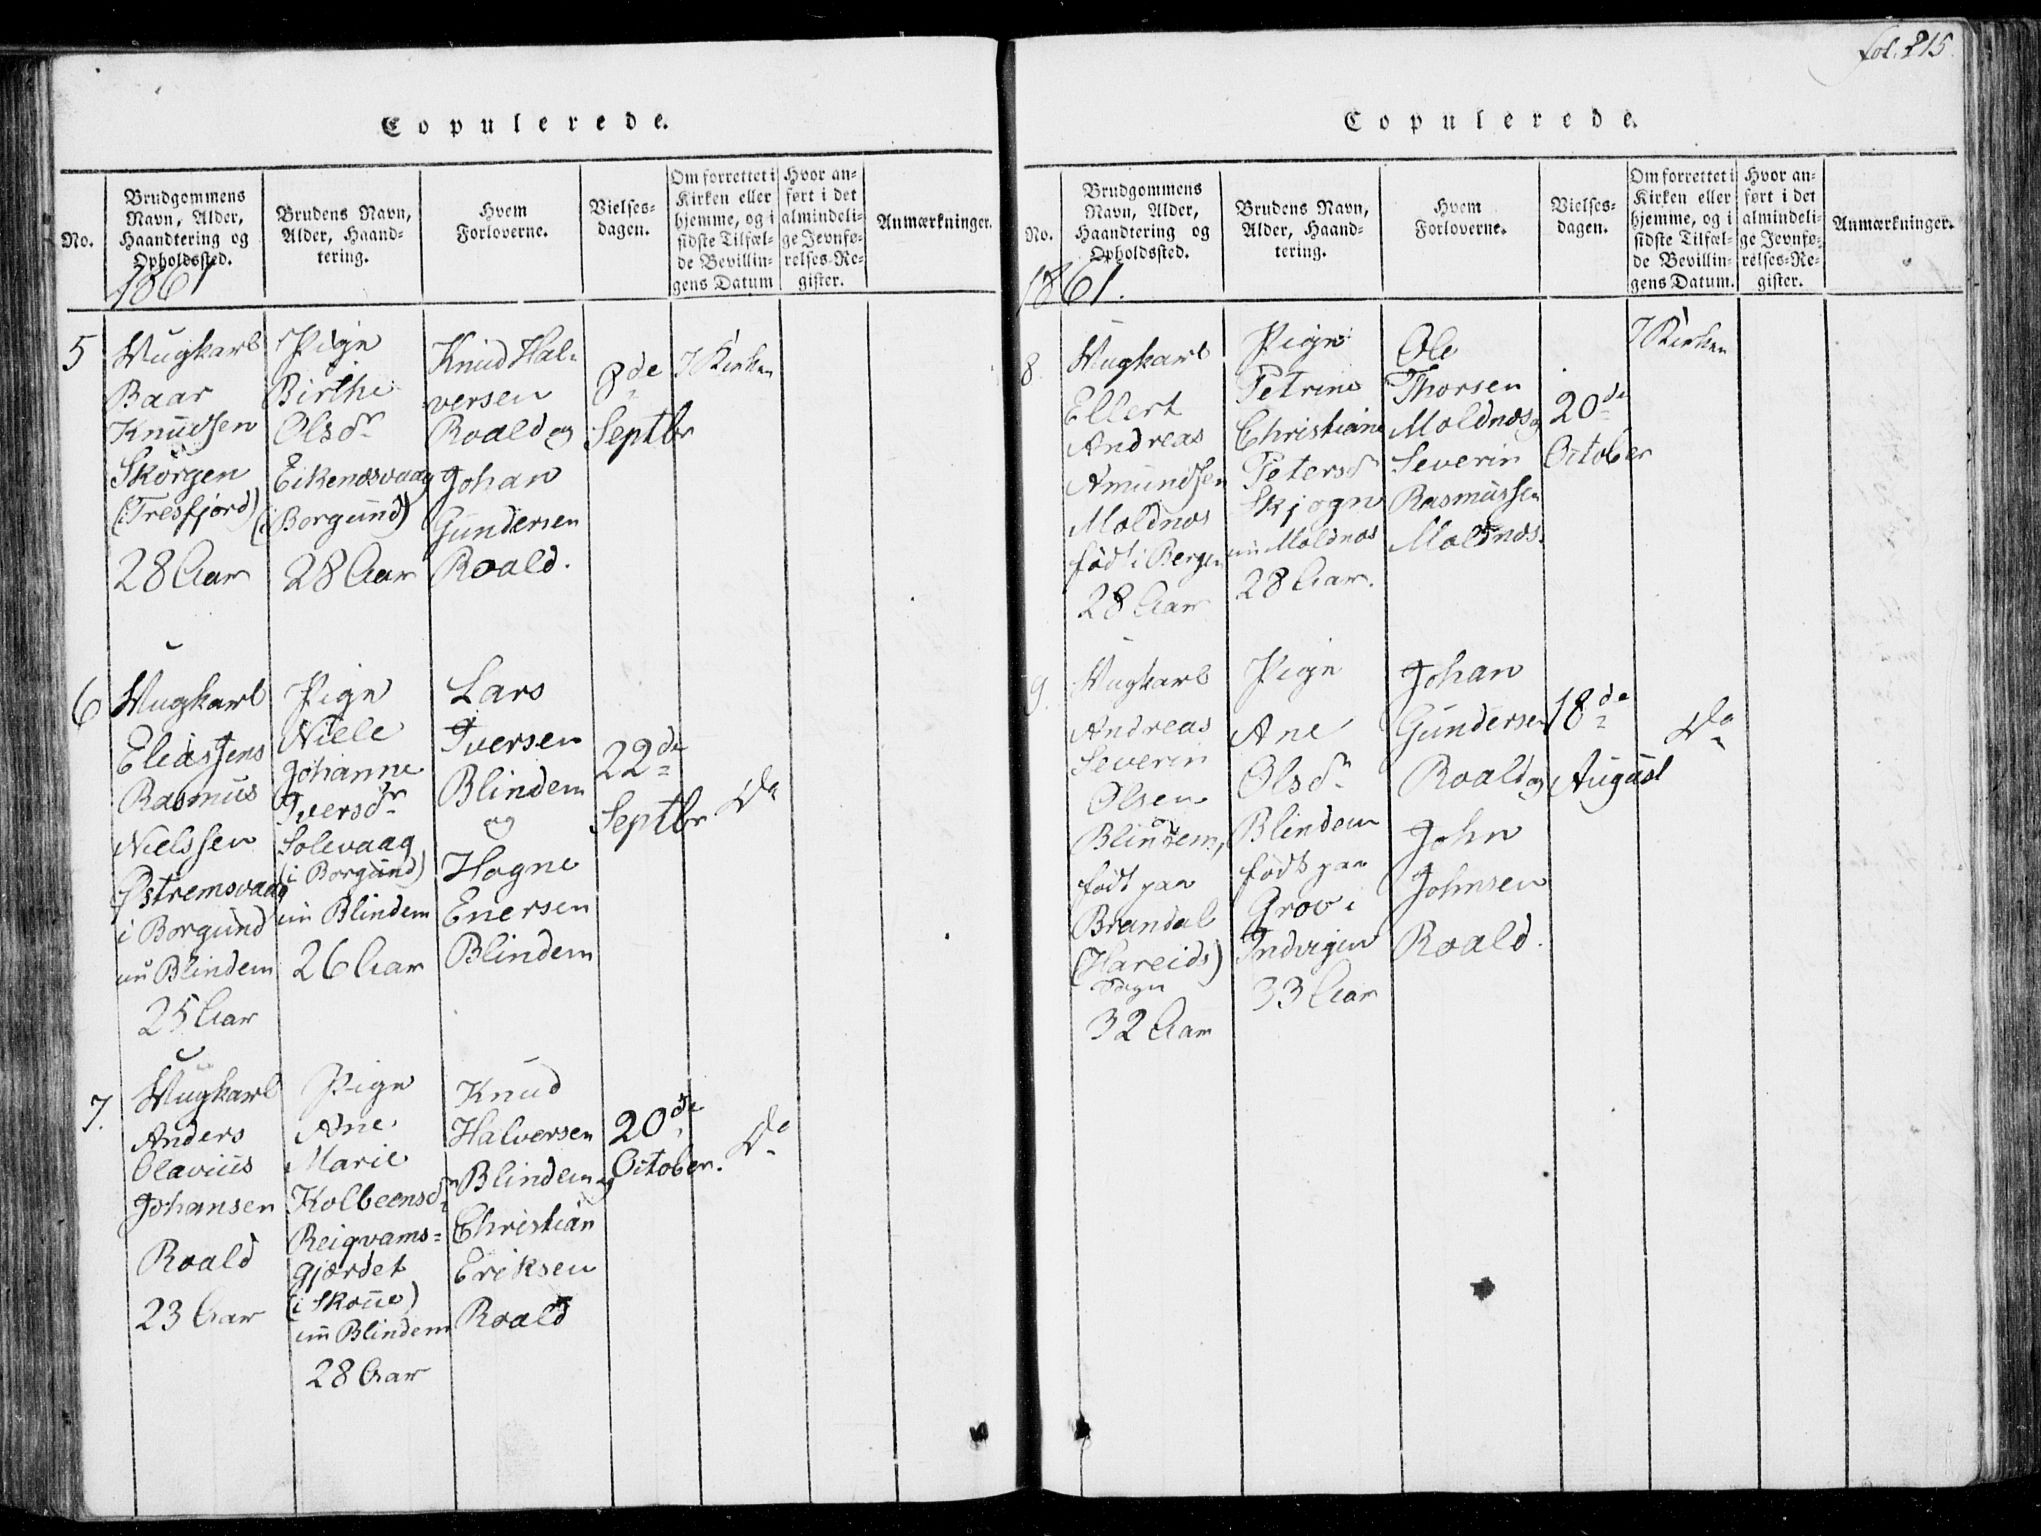 fol. 215.
Copulerede.
No.
Brudgommens
Navn, Alder,
Haandtering og
Opholdssted.
Brudens Navn,
Alder, Haand-
tering.
Hvem
Forloverne.
Vielses-
dagen.
Om forrettet i
Kirken eller
hjemme, og i
sidste Tilfæl-
de Bevillin-
gens Datum
Hvor an-
ført i det
almindeli-
ge Jevnfø-
relses-Re-
gister.
Anmærkninger.
1861
5
Ungkarl
Baar
Knudsen
Skorgen
(i Tresfjord)
28 Aar
Pige
Birthe
Olsdr
Eikenæsvaag
(i Borgund)
28 Aar
Knud Hal-
versen
Roald og
Johan
Gundersen
Roald.
8de
Septbr
I Kirken
6
Ungkarl
Elias Jens
Rasmus
Nielssen
Østremsvaag
i Borgund
nu Blindem
25 Aar
Pige
Niele
Johanne
Iversdr
Solevaag
(i Borgund)
nu Blindem
26 Aar
Lars
Iversen
Blindem
og
Hogne
Enersen
Blindem
22de
Septbr
Do
7.
Ungkarl
Anders
Olavius
Johansen
Roald
23 Aar
Pige
Ane
Marie
Kolbeensdr
Reiqvams-
gjærdet
(i Skoue)
nu Blindem
28 Aar
Knud
Halversen
Blindem og
Christian
Eriksen
Roald
20de
October.
Do
Copulerede.
No.
Brudgommens
Navn, Alder,
Haandtering og
Opholdssted.
Brudens Navn,
Alder, Haand-
tering.
Hvem
Forloverne.
Vielses-
dagen.
Om forrettet i
Kirken eller
hjemme, og i
sidste Tilfæl-
de Bevillin-
gens Datum.
Hvor an-
ført i det
almindeli-
ge Jevnfø-
relses-Re-
gister.
Anmærkninger.
1861.
8.
Ungkarl
Ellert
Andreas
Amundsen
Moldnæs
født i Bergen
28 Aar
Pige
Petrine
Christiane
Petersdr
Skjogne
nu Moldnæs
28 Aar.
Ole
Thorsen
Moldnæs og
Severin
Rasmussen
Moldnæs.
20de
October
I Kirken
9.
Ungkarl
Andreas
Severin
Olsen
Blindem,
født paa
Brandal
(Hareids)
Sogn
32 Aar
Pige
Ane
Olsdr
Blindem
født paa
Grov i
Indvigen
33 Aar
Johan
Gundersen
Roald og
John
Johnsen
Roald.
18de
August
Do